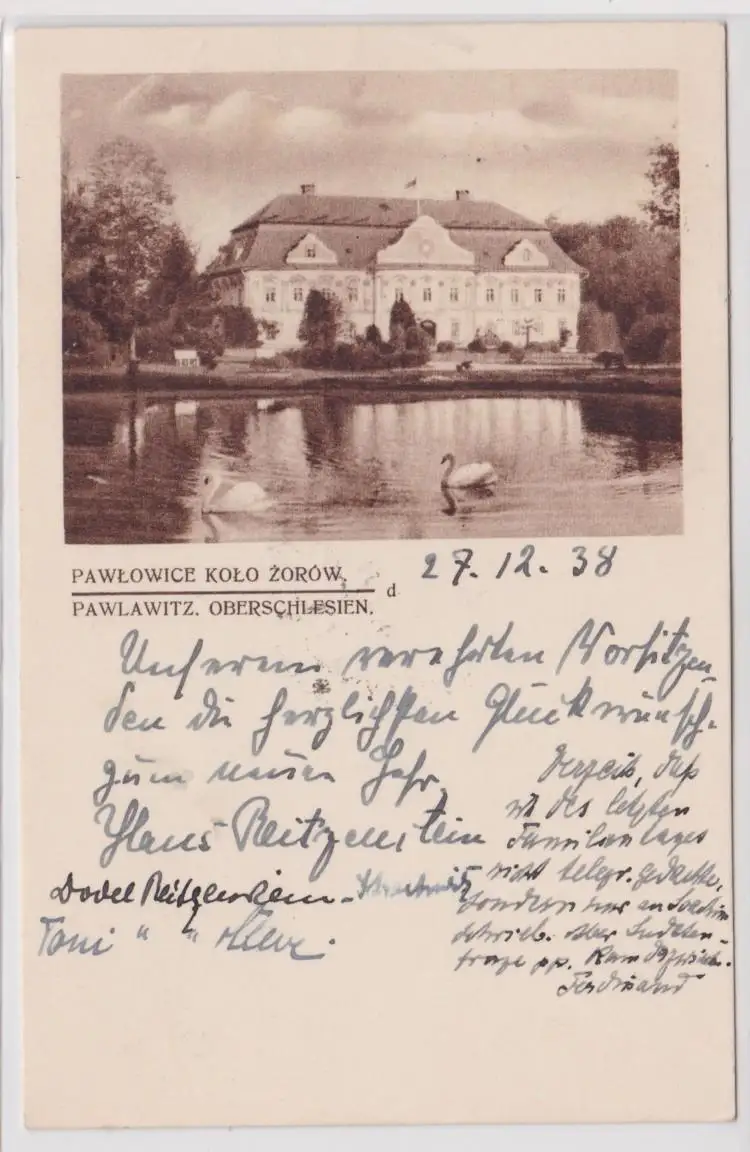 PAWŁOWICE KOŁO ŻORÓW.
d
PAWLAWITZ. OBERSCHLESIEN.
27. 12. 38
Unserem verehrten Vorsitzen
den die herzlichsten Glückwünsch-
zum neuen Jahr
Hans Reitzenstein
Dodel Reitzenstein -
Toni " "
Verzeih, daß
ich des letzten
Familientages
nicht telegr. gedachte,
sondern nur an Joachim
schrieb. Aber Sudeten-
frage pp. kam dazwisch.
Ferdinand